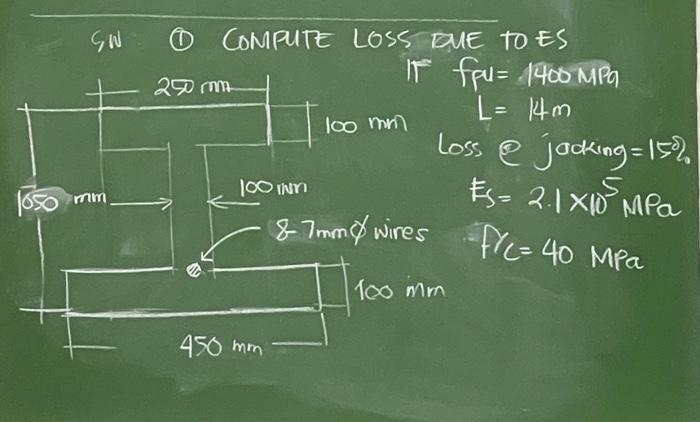 SW ① COMPUTE LOSS DUE TO ES
IF fpu = 1400 MPa
250 mm
L = 14m
100 mm
Loss @ jacking = 15%
1050 mm
100 mm
Es = 2.1 × 10⁵ MPa
8-7mm ϕ wires
f'c = 40 MPa
100 mm
450 mm